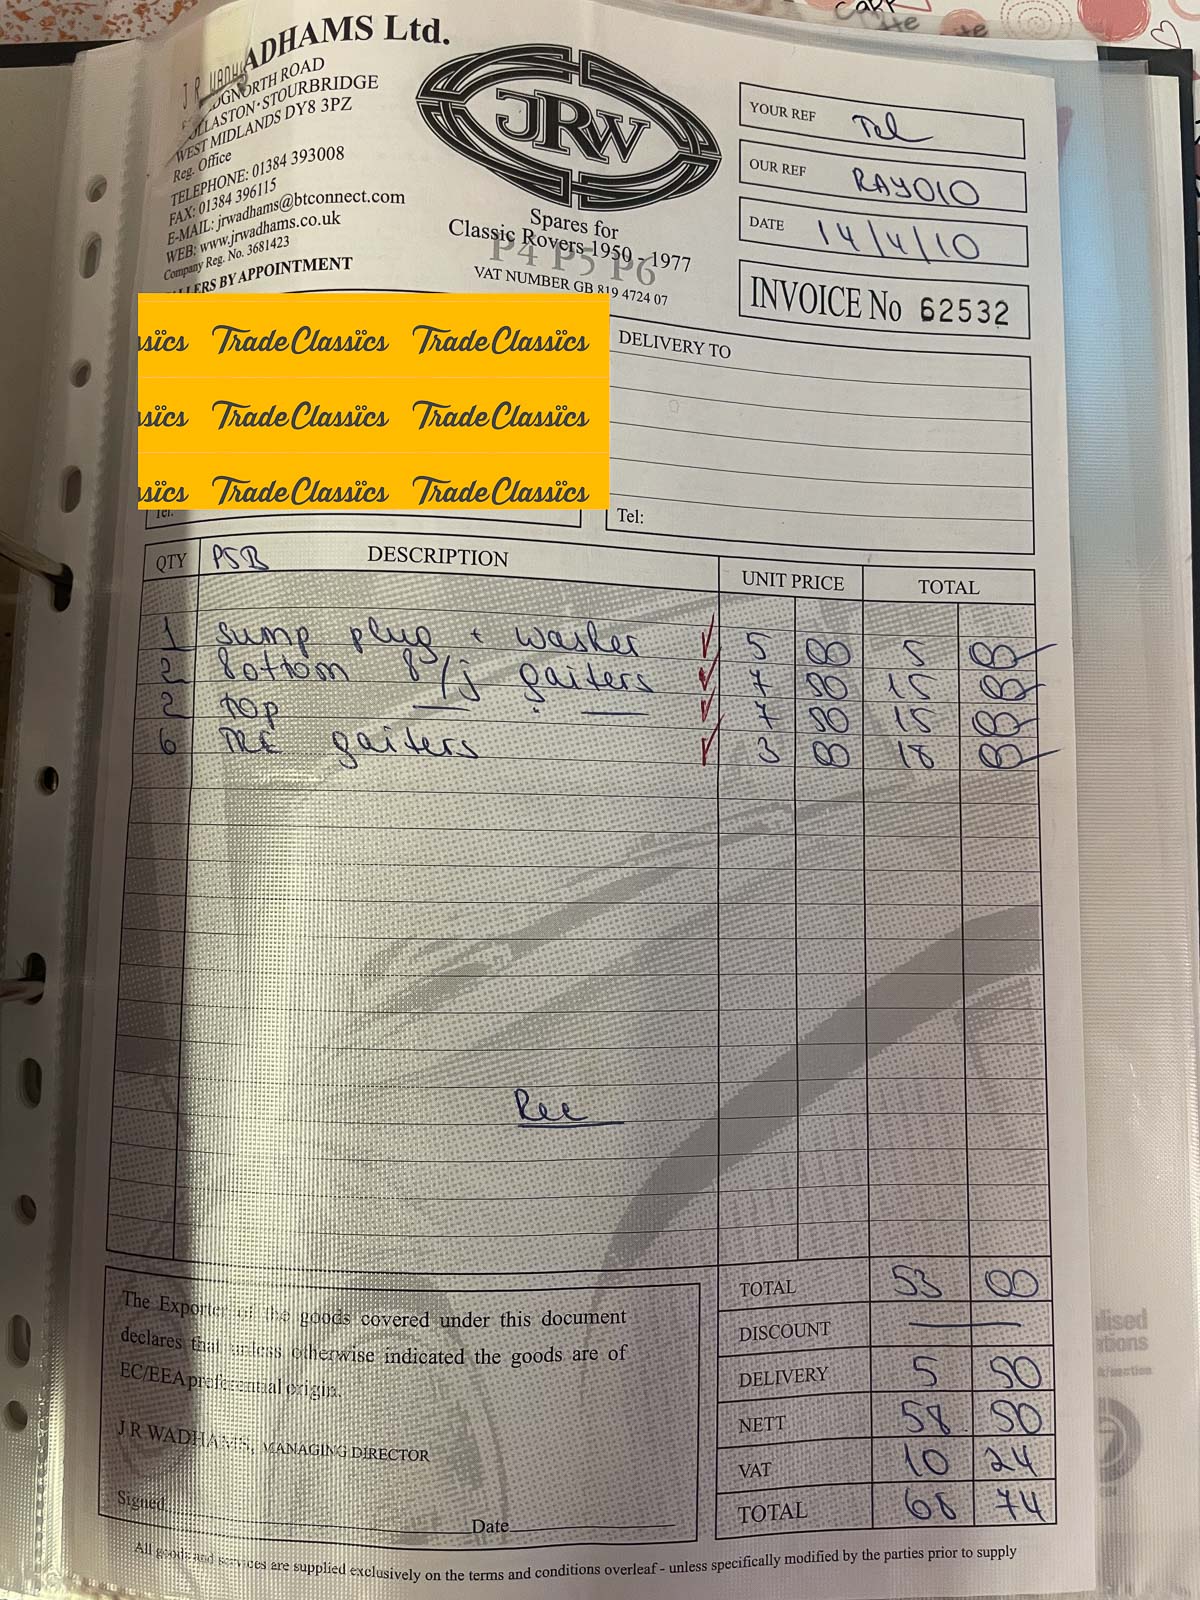 WADHAMS Ltd.
OGNORTH ROAD
LLASTON · STOURBRIDGE
WEST MIDLANDS DY8 3PZ
Reg. Office
TELEPHONE: 01384 393008
FAX: 01384 396115
E-MAIL: jrwadhams@btconnect.com
WEB: www.jrwadhams.co.uk
Company Reg. No. 3681423
LLERS BY APPOINTMENT
JRW
Spares for
Classic Rovers 1950 - 1977
P4 P5 P6
VAT NUMBER GB 819 4724 07
YOUR REF Tel
OUR REF RAY010
DATE 14/4/10
INVOICE No 62532
ssics TradeClassics TradeClassics
ssics TradeClassics TradeClassics
ssics TradeClassics TradeClassics
Tel:
DELIVERY TO
Tel:
QTY P5B DESCRIPTION UNIT PRICE TOTAL
1 sump plug + washer 5 00 5 00
2 bottom B/j gaiters 7 50 15 00
2 top 7 50 15 00
6 TRE gaiters 3 00 18 00
Rec
TOTAL 53 00
DISCOUNT
DELIVERY 5 50
NETT 58 50
VAT 10 24
TOTAL 68 74
The Exporter of the goods covered under this document
declares that unless otherwise indicated the goods are of
EC/EEA preferential origin.
J R WADHAMS, MANAGING DIRECTOR
Signed
Date
All goods and services are supplied exclusively on the terms and conditions overleaf - unless specifically modified by the parties prior to supply